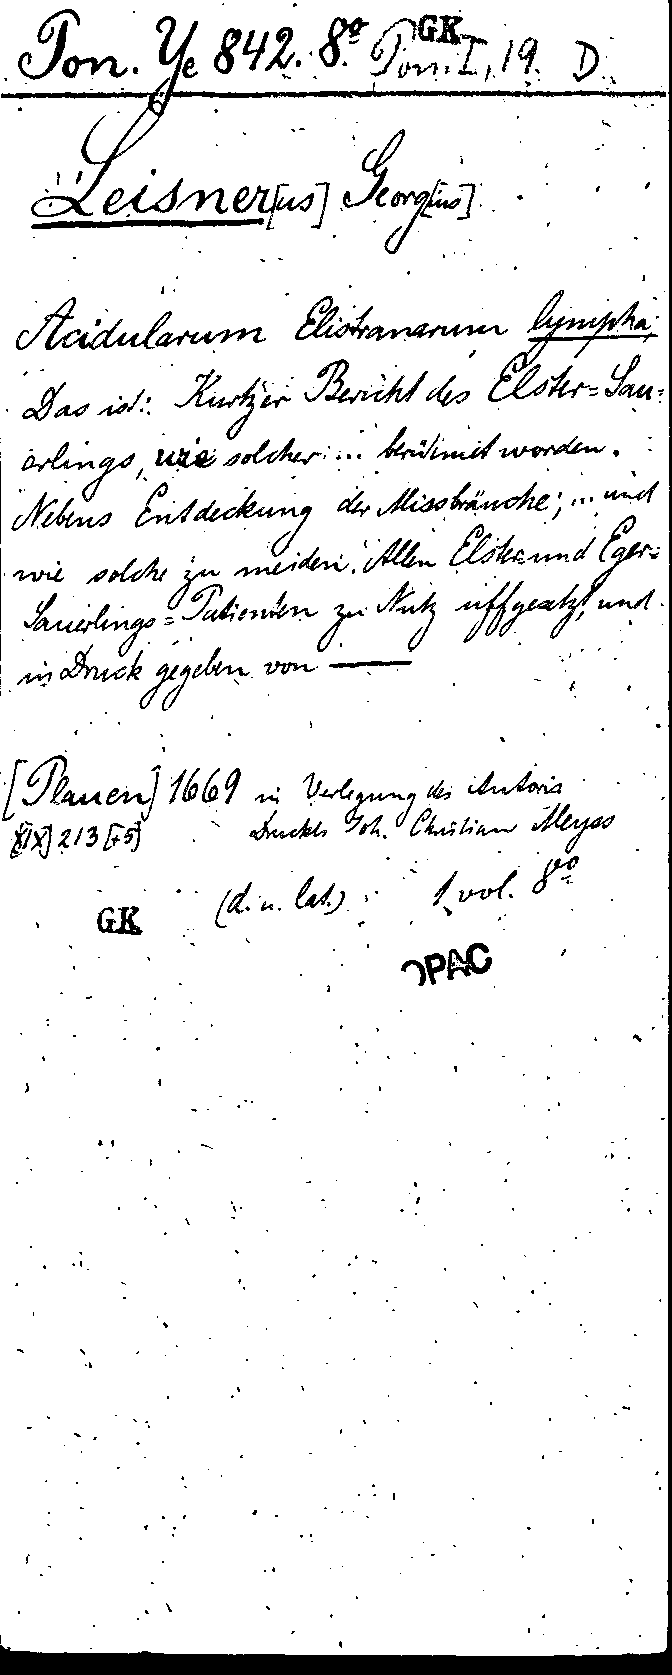 Pon. Ye 842. 8º. GK Pon. I, 19. D.
Leisner[us] Georg[ius]
Acidularum Elistranarum lympha,
Das ist: Kurtzer Bericht des Elster=Sau=
erlings, wie solcher ... berühmet worden.
Nebens Entdeckung der Missbräuche; ... und
wie solche zu meiden. Allen Elster und Eger=
Sauerlings=Patienten zu Nutz uffgesetzt, und
in Druck gegeben von —
[Plauen] 1669 in Verlegung des Autoris
213 [+5] Druckts Joh. Christian Meyss
GK (d. u. lat.) 1 vol. 8vo
OPAC